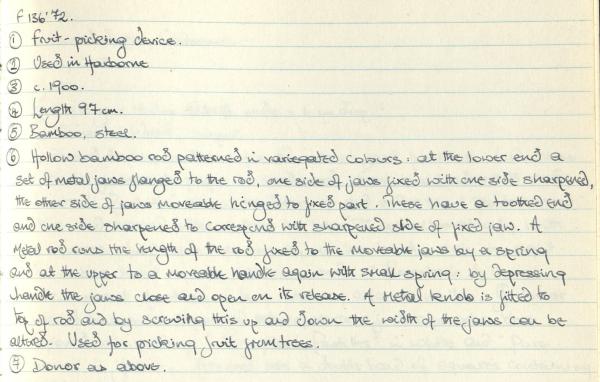 F 136'72.
① Fruit-picking device.
② Used in Harborne
③ c. 1900.
④ Length 97cm.
⑤ Bamboo, steel.
⑥ Hollow bamboo rod patterned in variegated colours: at the lower end a
set of metal jaws flanged to the rod, one side of jaws fixed with one side sharpened,
the other side of jaws moveable hinged to fixed part. These have a toothed end
and one side sharpened to correspond with sharpened side of fixed jaw. A
metal rod runs the length of the rod fixed to the moveable jaws by a spring
and at the upper to a moveable handle again with small spring: by depressing
handle the jaws close and open on its release. A metal knob is fitted to
top of rod and by screwing this up and down the width of the jaws can be
altered. Used for picking fruit from trees.
⑦ Donor as above.